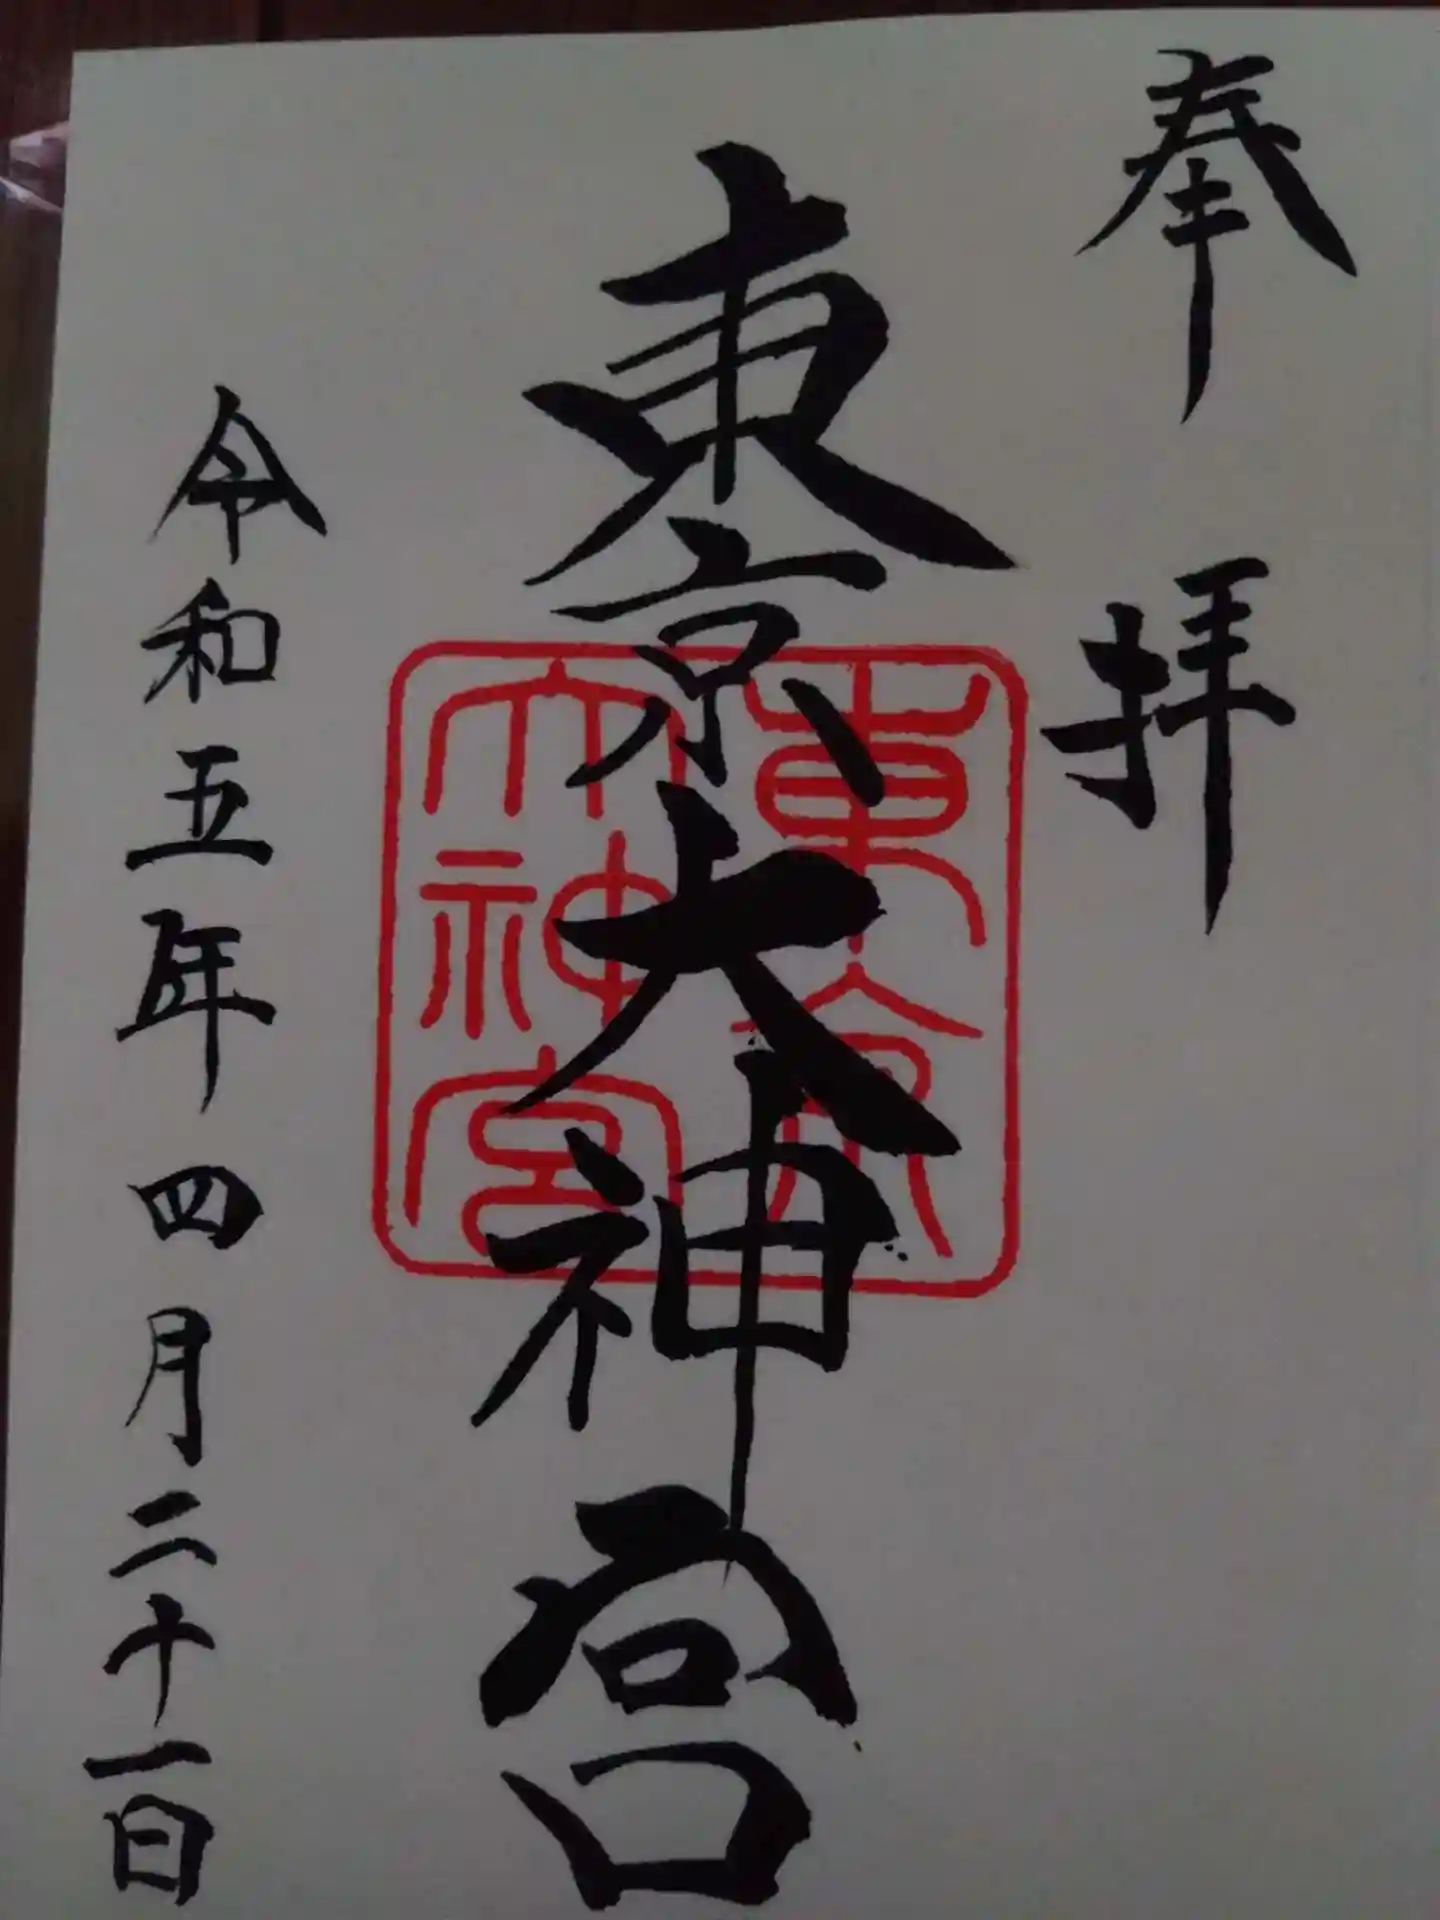 奉拝
東京大神宮
東京
大神宮
令和五年四月二十一日